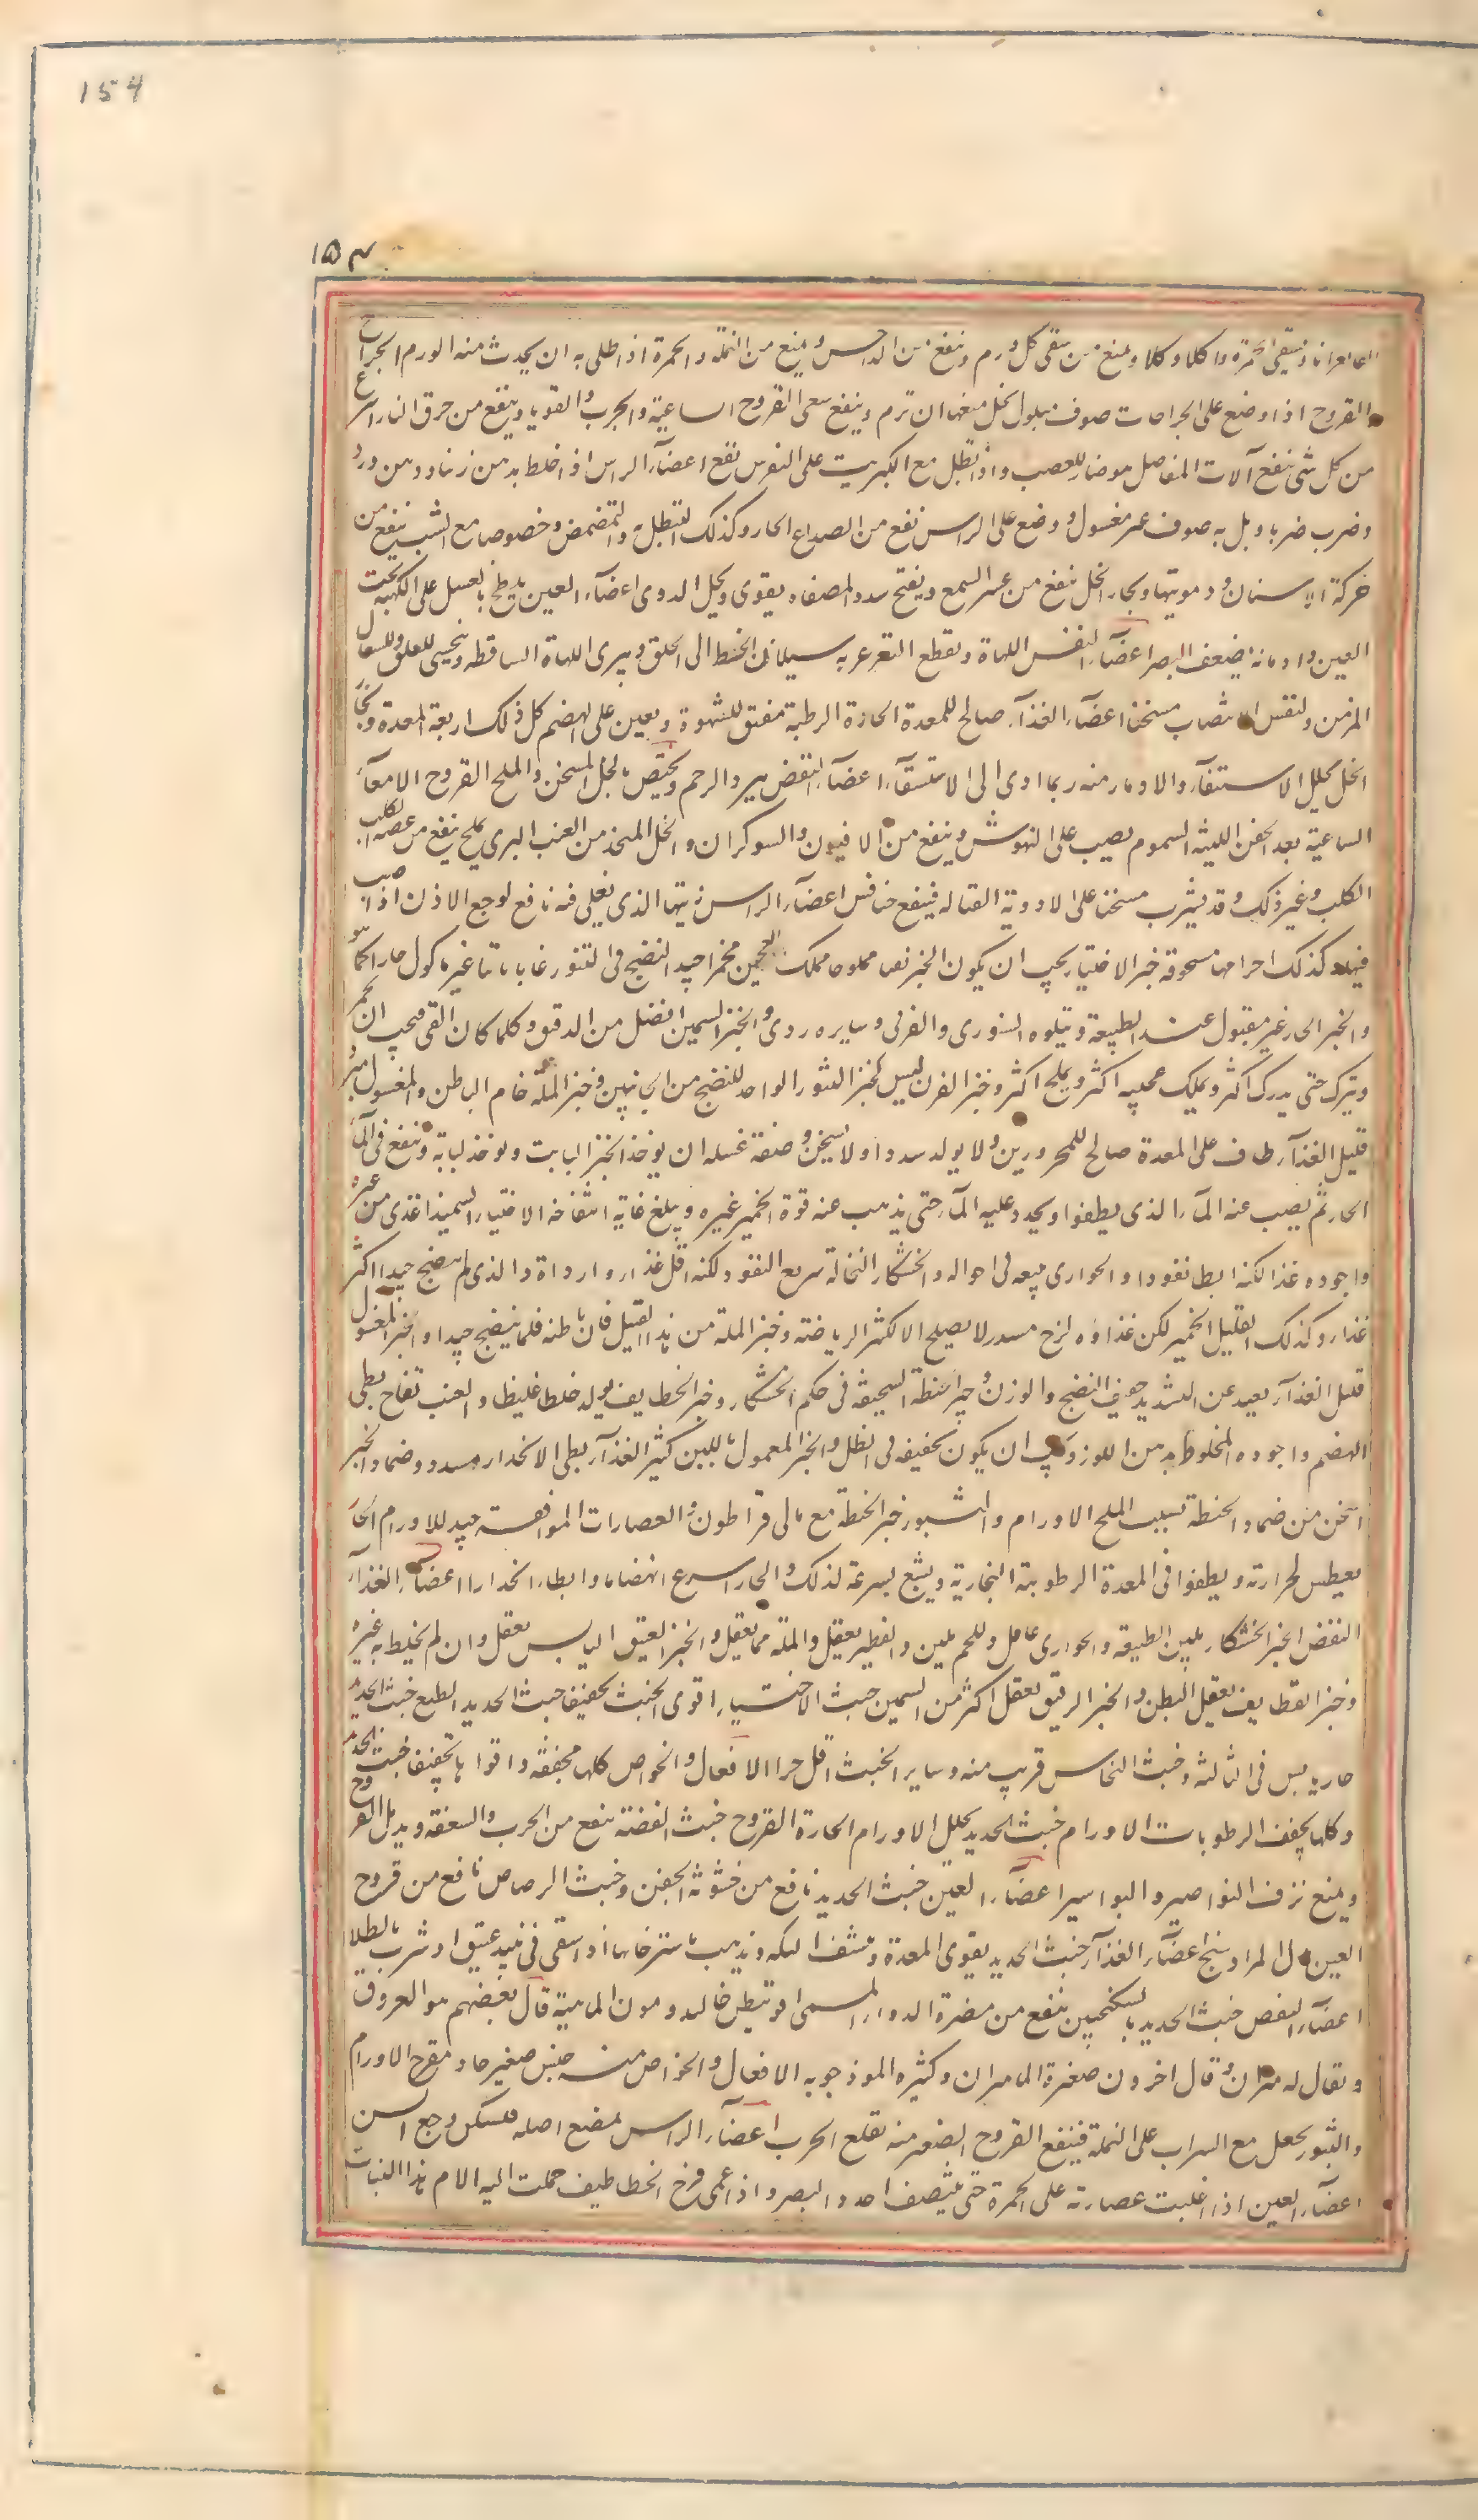 154
١٥٤
وينفع من الداحس ويمنع من النملة والحمرة اذا طلى به ان يحدث منه الورم الجراح
والقروح اذا وضع على الجراحات صوف مبلول بخل منعها ان ترم وينفع سعى القروح الساعية والجرب والقوبا وينفع من حرق النار اسرع
من كل شى ينفع آلات المفاصل مضار للعصب واذا تطل مع الكبريت على النقرس نفع اعضآء الراس اذا خلط بدهن زيتا ودهن ورد
وضرب ضربا وبل به صوف غير مغسول ووضع على الراس نفع من الصداع الحار وكذلك التنطل به والتمضمض وخصوصا مع الشب ينفع من
حركة الاسنان ودمويتها وبخار الخل ينفع من عسر السمع ويفتح سدد المصفاه بقوى ويحلل الدوى اعضآء العين يطبخ بالعسل على الكهبة تحت
العين وادمانه يضعف البصر اعضآء النفس اللهاة ويقطع التغرغر به سيلان الخلط الى الحلق ويبرى اللهاة الساقطه ويتحسى للعلق وللسعال
المزمن ولنفس الانتصاب مسخنا اعضآء الغذآء صالح للمعدة الحارة الرطبة مفتق للشهوة ويعين على الهضم كل ذلك اربعة المعدة وبخار
الخل يحلل الاستسقآء والادمان منه ربما ادى الى الاستسقآء اعضآء النفض يبرد الرحم ويحتقن بالخل المسخن والملح القروح الامعآء
الساعية بعد الحقن اللينه السموم يصب على النهوش وينفع من الافيون والسوكران والخل المتخذ من العنب البرى بملح ينفع من عضه الكلب
الكلب وغير ذلك وقد يشرب مسخنا على الادوية القتاله فينفع خنافس اعضآء الراس زيتها الذى تغلى فيه نافع لوجع الاذن اذا صب
فيها وكذلك اجرامها مسحوقة خبز الاختيار يجب ان يكون الخبز نقيا مملوحا مملك العجين مخمرا جيد النضج فى التنور غابا باتا غير ماكول حار اكما هو
والخبز الحار غير مقبول عند الطبيعة ويتلوه التنورى والفرنى وسايره ردى والخبز السمين افضل من الدقق وكلما كان انقى فيجب ان يخمر
ويترك حتى يدرك اكثر ويملك عجينه اكثر ويملح اكثر وخبز الفرن ليس كخبز التنور الواحد للنضج من الجانبين وخبز الملة خام الباطن والمغسول مبرد
قليل الغذآء طاف على المعدة صالح للمحرورين ولا يولد سددا ولا تسخن وصفة غسله ان يوخذ الخبز البايت ويوخذ لبابه وينقع فى المآء
الحار ثم يصب عنه المآء الذى يطفوا ويجدد عليه المآء حتى يذهب عنه قوة الخمير غيره ويبلغ غاية انتفاخه الاختيار السميذ اغذى من غيره
واجوده غذا لكنه ابطا نفوذا والحوارى يتبعه فى احواله والخشكار النخالة سريع النفوذ لكنه اقل غذاء وارداه والذى لم ينضج جيدا اكثر
غذاء وكذلك القليل الخمير لكن غذاؤه لزج مسدد لا يصلح الا لكثير الرياضه وخبز الملة من هذا القبيل فان باطنه فلما ينضج جيدا والخبز المغسول
قليل الغذآء بعيد عن التسديد خفيف النضج والوزن وخبز الحنطة السخيفة فى حكم الخشكار وخبز القطايف يولد خلطا غليظا والعنب نفاخ بطى
الهضم واجوده المخلوط بدهن اللوز ويجب ان يكون تجفيفه فى الظل والخبز المعمول باللبن كثير الغذآء بطى الانحدار مسدد وضماد الخبز
اسخن من ضماد الحنطة بسبب الملح الاورام والبثور خبز الحنطة مع مالى قراطون والعصارات الموافقه جيد للاورام الحارة
يعطس لحرارته ويطفوا فى المعدة الرطوبته البخارية ويشبع بسرعة لذلك والحار اسرع انهضاما وابطاء انحدارا اعضآء الغذآء
النفض الخبز الخشكار يلين الطبيعة والحوارى عاقل وللحم يلين والفطير يعقل والملة مما يعقل والخبز العتيق اليابس يعقل وان لم يخلط به غيره
وخبز القطايف يعقل البطن والخبز الرقيق يعقل اكثر من السمين خبث الاختيار اقوى الخبث تجفيفا خبث الحديد الطبع خبث الحديد
حار يابس فى الثالثه وخبث النحاس قريب منه وساير الخبث اقل حرا الافعال والخواص كلها مجففة واقواها تجفيفا خبث الحديد
وكلها يجفف الرطوبات الاورام خبث الحديد يحلل الاورام الحارة القروح خبث الفضة ينفع من الجرب والسعفه ويدمل القروح
ويمنع نزف النواصير والبواسير اعضآء العين خبث الحديد نافع من خشونة الجفن وخبث الرصاص نافع من قروح
العين بدل المرداسنج اعضآء الغذآء خبث الحديد يقوى المعدة وينشف البله ويذهب باسترخائها اذا سقى فى نبيذ عتيق او شرب بالطلا
اعضآء النفض خبث الحديد بالسكنجبين ينفع من مضرة الدواء المسمى افونيطن خاليدومون الماهية قال بعضهم هو العروق
ويقال له مران وقال اخرون صغيرة الماميران وكثيره الموذ جوبه الافعال والخواص منه جنس صغير حاد مقرح الاورام
والبثور يجعل مع الشراب على النملة فينفع القروح الصغير منه تقلع الجرب اعضآء الراس يمضغ اصله فيسكن وجع السن
اعضآء العين اذا اغليت عصارته على الجمرة حتى ينتصف احد البصر واذا عمى فرخ الخطاطيف حملت اليه الام هذا النبات